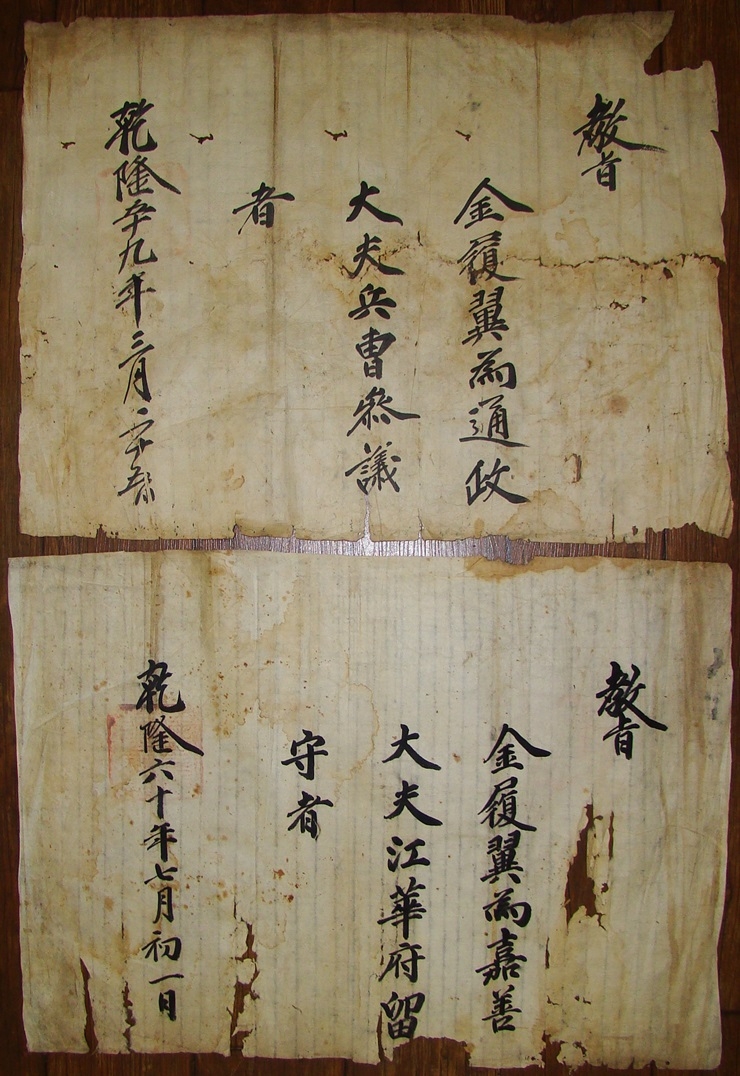 敎旨
金履翼為通政
大夫兵曺叅議
者
乾隆五十九年三月二十
敎旨
金履翼為嘉善
大夫江華府留
守者
乾隆六十年七月初一日